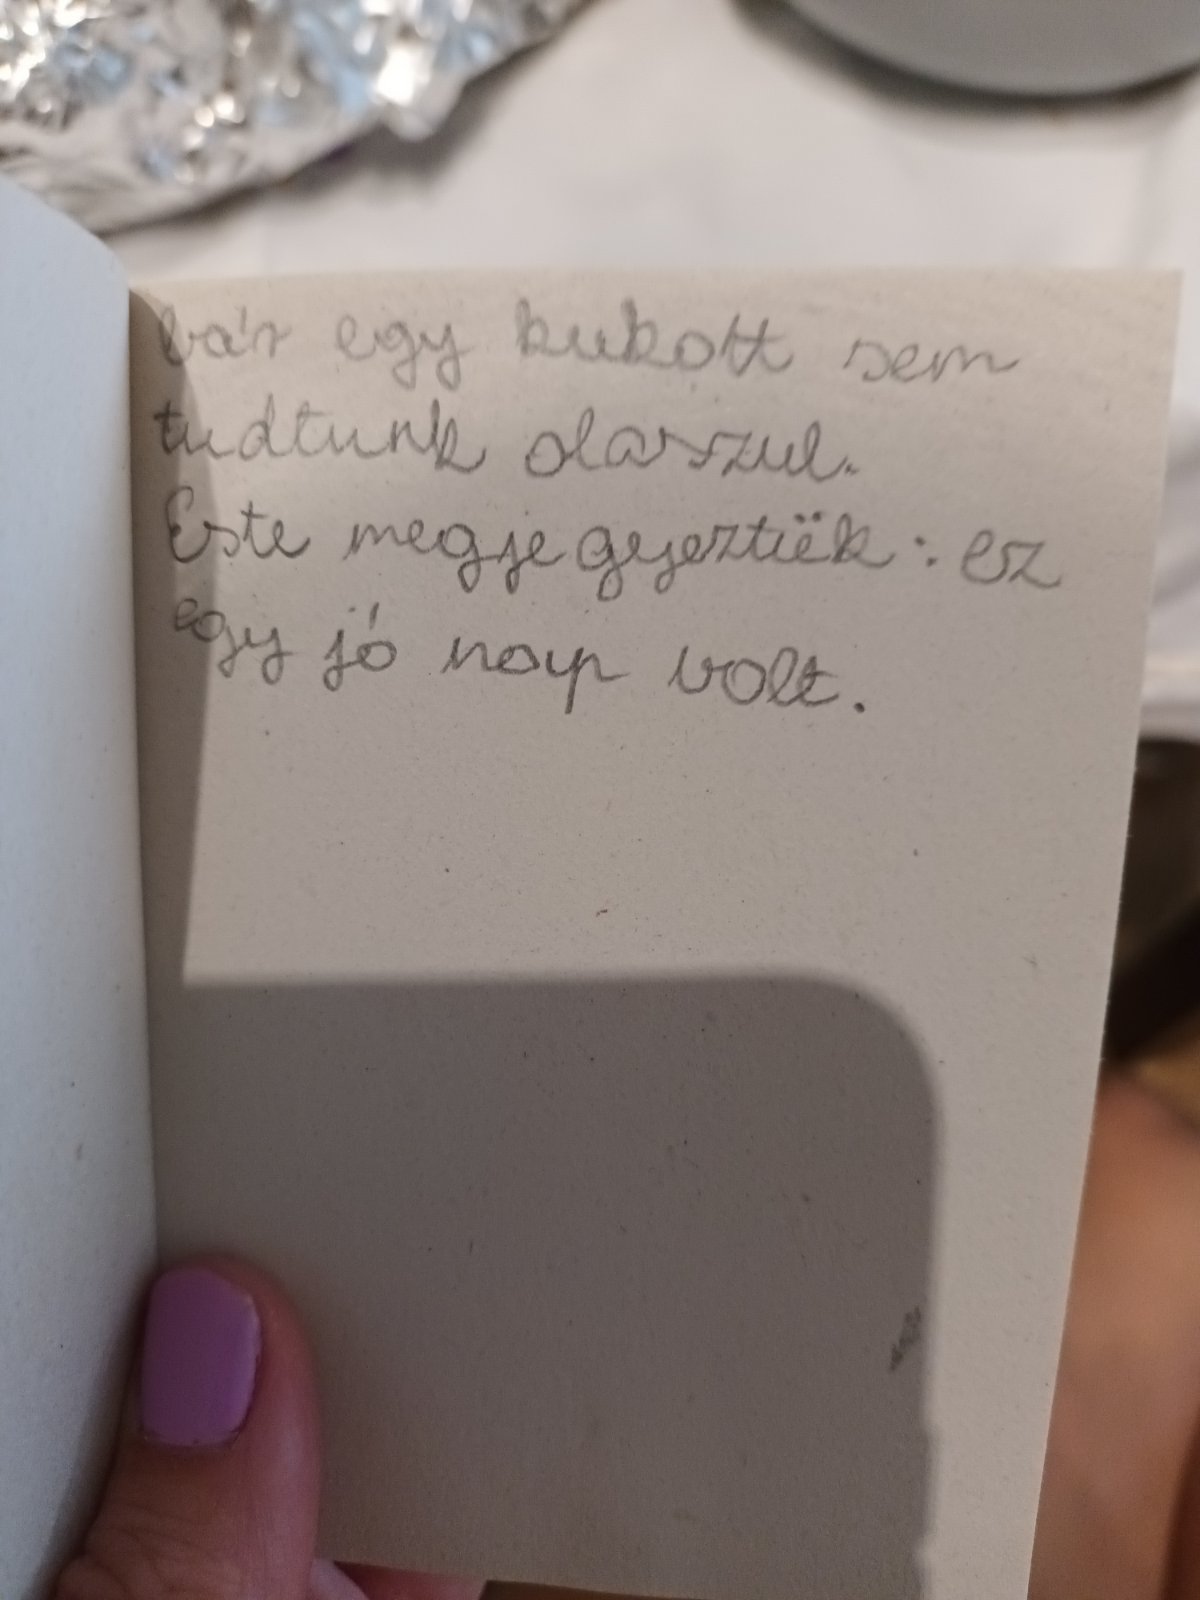 bár egy kukott sem
tudtunk olaszul.
Este megjegyeztük: ez
egy jó nap volt.